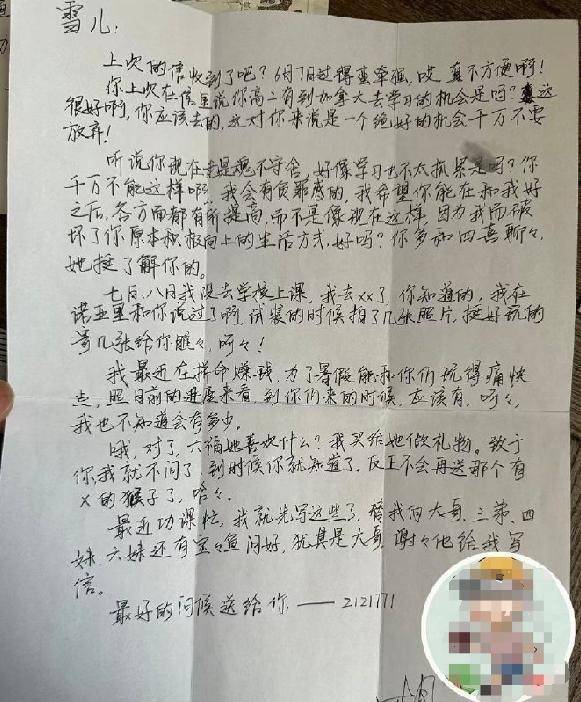 雪儿:
上次的信收到了吧?6月7日过得蛮牵强,哎,真不方便啊!
你上次在信里说你高二有到加拿大去学习的机会是吗?真这
很好啊,你应该去的,这对你来说是一个绝好的机会千万不要
放弃!
听说你现在老是魂不守舍,好像学习也不太抓紧是吗?你
千万不能这样啊,我会有负罪感的,我希望你能在和我好
之后,各方面都有所提高,而不是像现在这样,因为我而破
坏了你原本积极向上的生活方式,好吗?你多和四喜聊々,
她挺了解你的。
七日、八日我没去学校上课,我去xx了,你知道的,我在
和你说过了啊,试装的时候拍了几张照片,挺好玩的
寄几张给你瞧々,呵々!
我最近在拼命赚钱,为了暑假能和你们玩得痛快
点,照目前的进度来看,到你们来的时候,应该有,呵々,
我也不知道会有多少。
哦,对了,六福她喜欢什么?我买给她做礼物。致于
你,我就不问了,到时候你就知道了,反正不会再送那个有
X的猴子了,哈々。
最近功课忙,我就先写这些了,替我向大哥、三弟、四
妹、六妹还有宝々鱼问好,尤其是大哥,谢々他给我写
信。
最好的问候送给你 —— 2121771